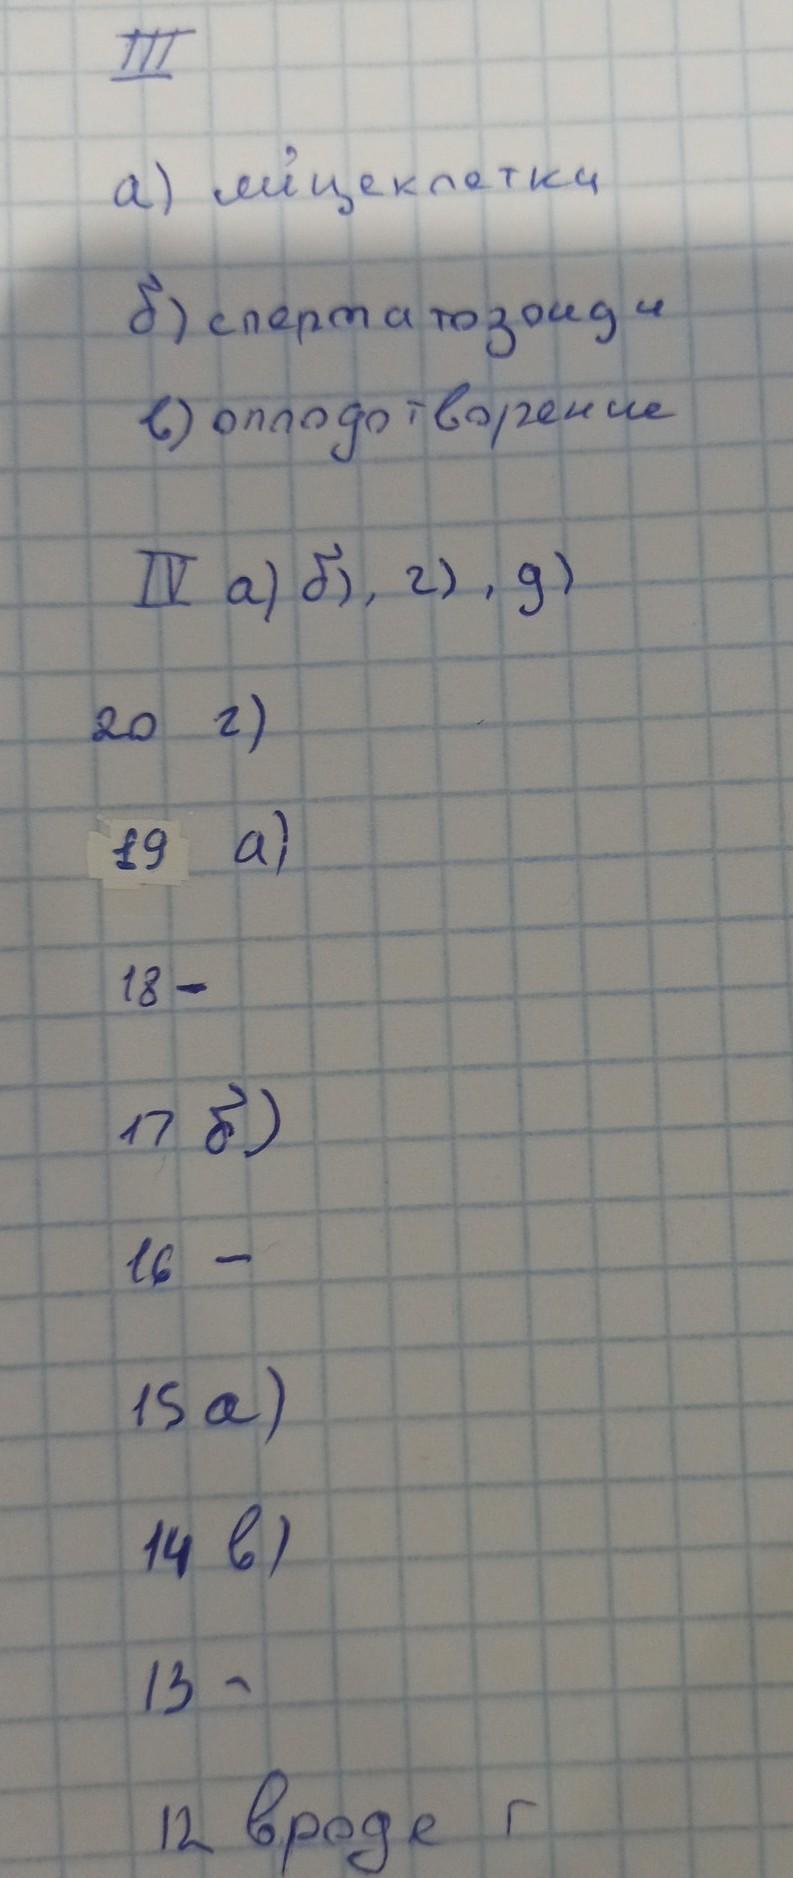 III
а) яйцеклетки
б) сперматозоиди
в) оплодотворение
IV а) б), г), д)
20 г)
19 а)
18 -
17 б)
16 -
15 а)
14 в)
13 -
12 вроде г